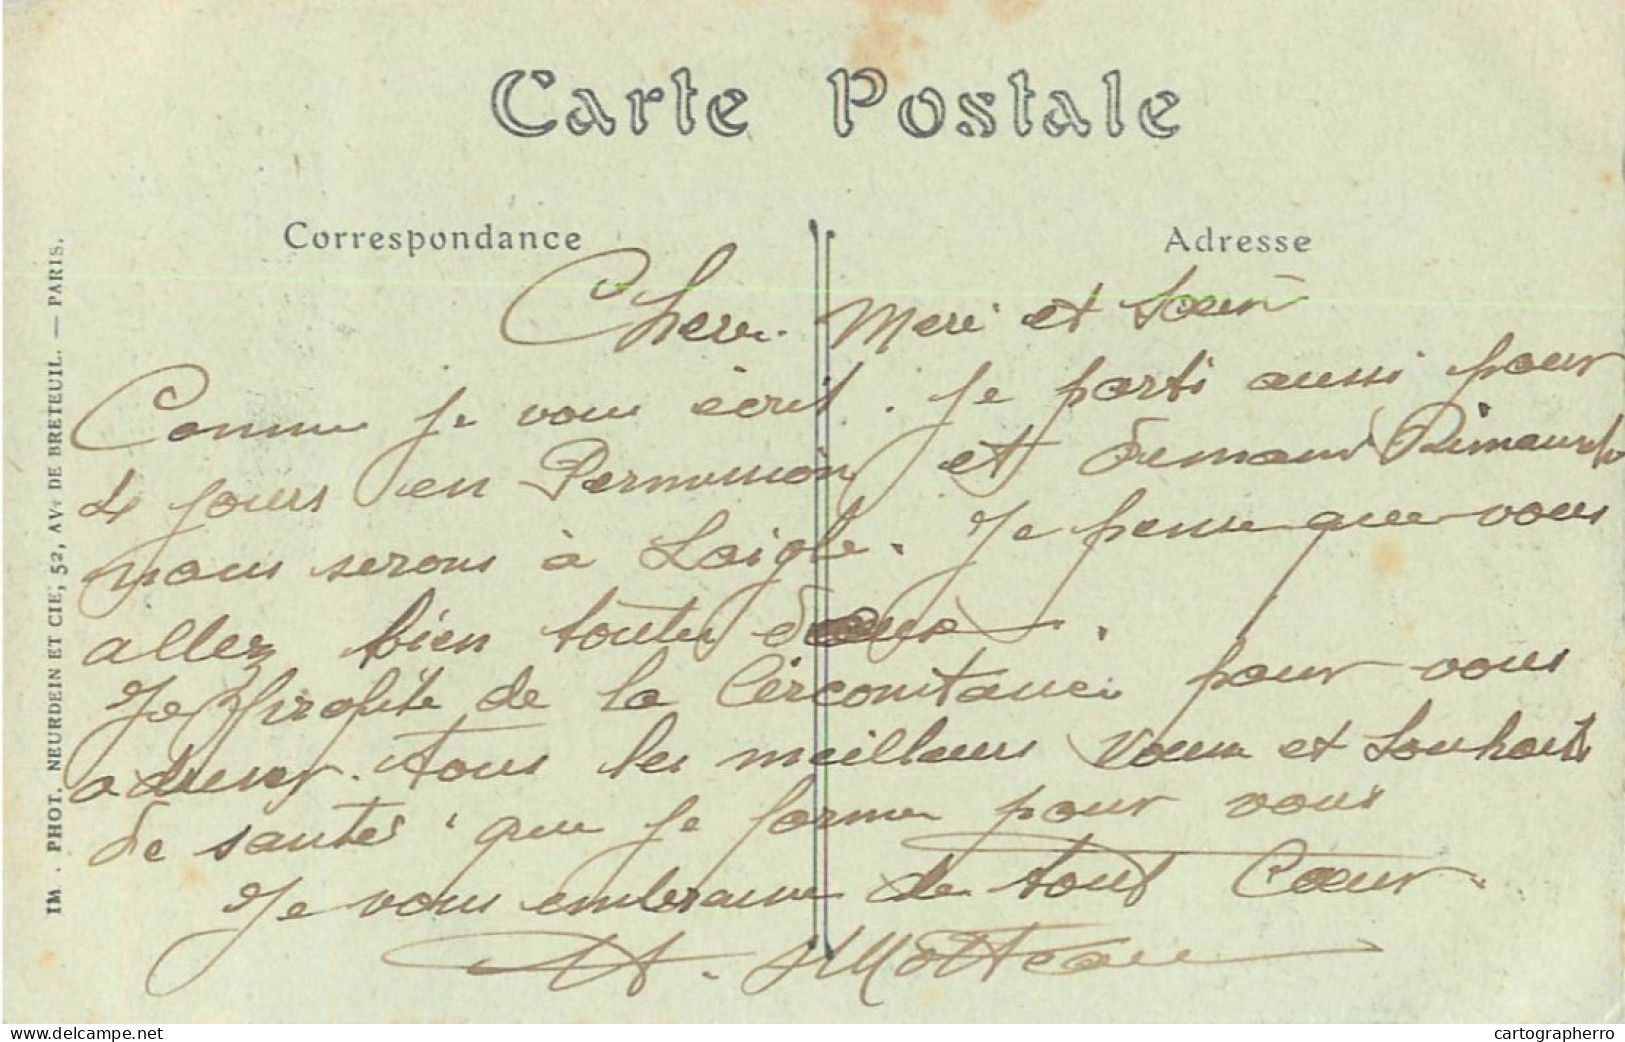 Carte Postale
Correspondance
Adresse
IM. PHOT. NEURDEIN ET CIE, 52, AVE DE BRETEUIL. — PARIS.
Chere Mere et Soeur
Comme je vous écrit. Je parti aussi pour
4 jours en Permission et demain Dimanche
nous serons à Laigle. Je pense que vous
allez bien toutes deux.
Je profite de la Circonstance pour vous
adresser tous les meilleurs voeux et Souhaits
de santés que je forme pour vous
Je vous embrasse de tout Cœur.
Motteau
cartographerro
www.delcampe.net